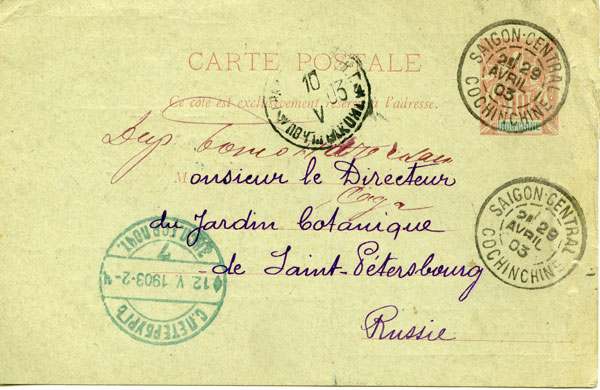 CARTE POSTALE
Ce côté est exclusivement réservé à l'adresse.
SAIGON-CENTRAL
2E 29
AVRIL
03
COCHINCHINE
10
V 03
Monsieur le Directeur
du Jardin botanique
de Saint-Pétersbourg
Russie
SAIGON-CENTRAL
2E 29
AVRIL
03
COCHINCHINE
7
12 V 1903-2-Ч
С.ПЕТЕРБУРГЪ